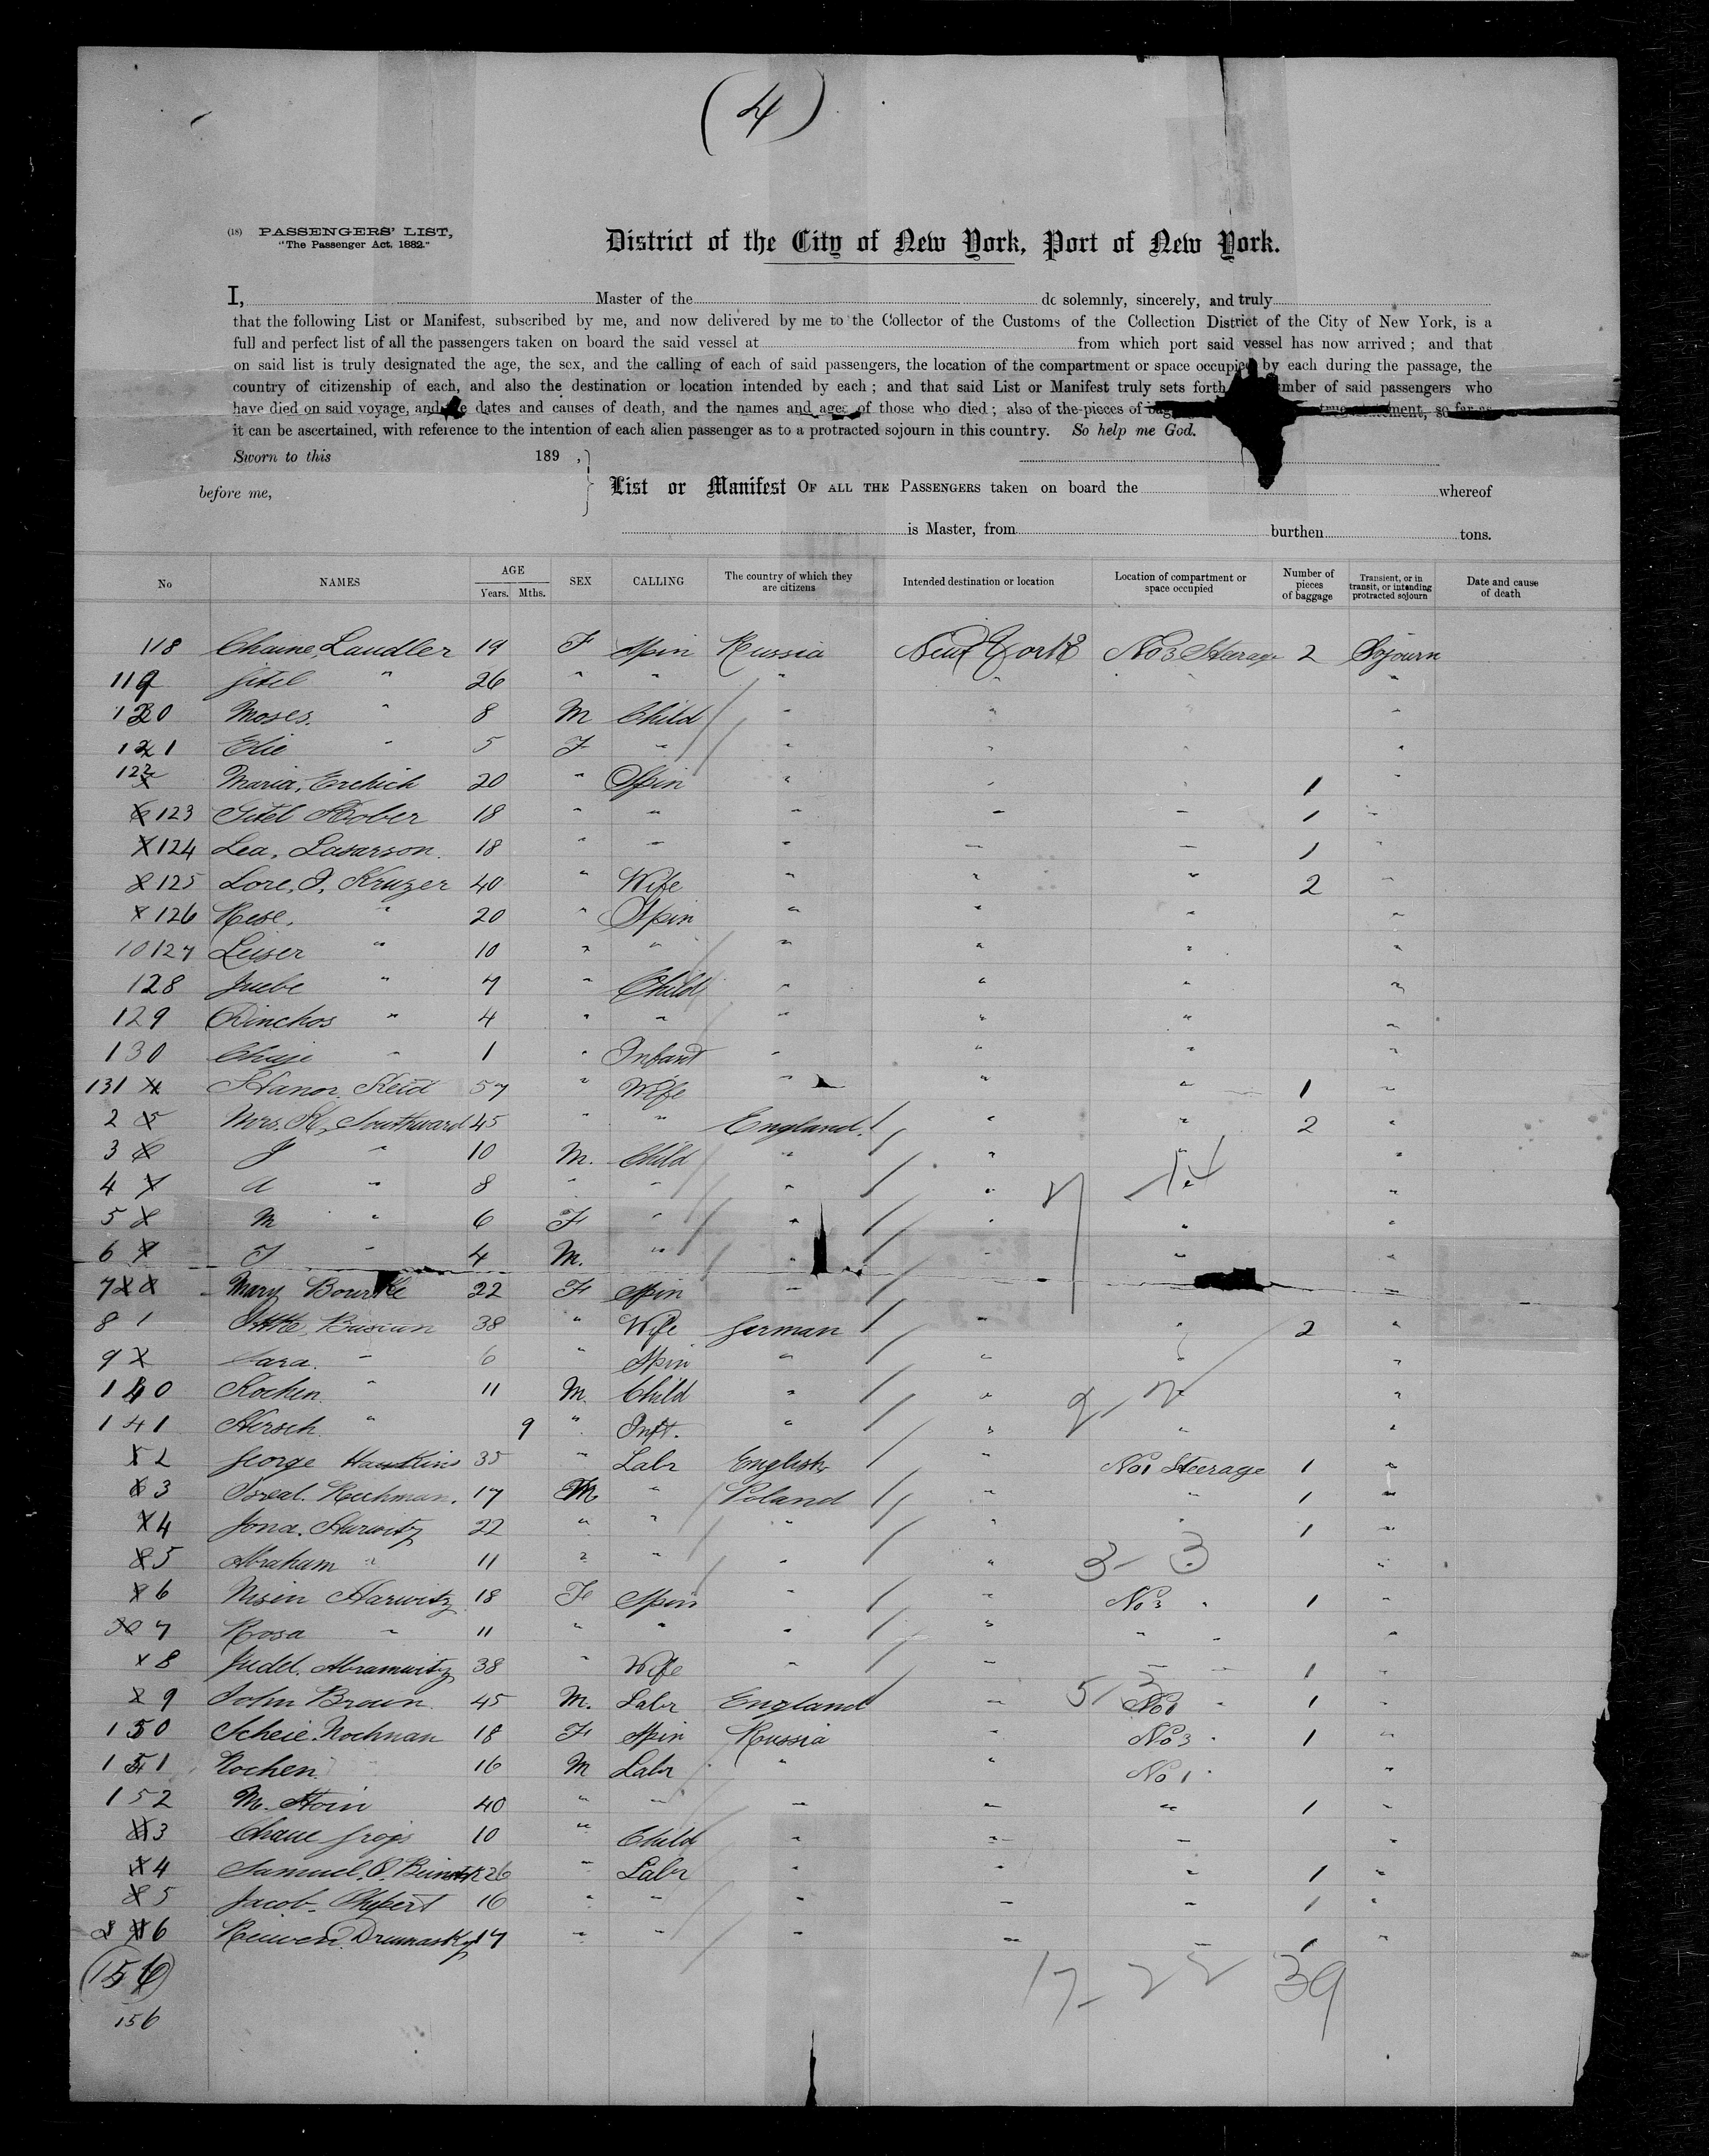 (4)
(18) PASSENGERS' LIST,
"The Passenger Act, 1882."
District of the City of New York, Port of New York.
I, Master of the do solemnly, sincerely, and truly
that the following List or Manifest, subscribed by me, and now delivered by me to the Collector of the Customs of the Collection District of the City of New York, is a
full and perfect list of all the passengers taken on board the said vessel at from which port said vessel has now arrived; and that
on said list is truly designated the age, the sex, and the calling of each of said passengers, the location of the compartment or space occupied by each during the passage, the
country of citizenship of each, and also the destination or location intended by each; and that said List or Manifest truly sets forth number of said passengers who
have died on said voyage, and the dates and causes of death, and the names and ages of those who died; also of the pieces of true statement, so far as
it can be ascertained, with reference to the intention of each alien passenger as to a protracted sojourn in this country. So help me God.
Sworn to this 189 ,
before me,
List or Manifest OF ALL THE PASSENGERS taken on board the whereof
is Master, from burthen tons.
No NAMES AGE Years. Mths. SEX CALLING The country of which they are citizens Intended destination or location Location of compartment or space occupied Number of pieces of baggage Transient, or in transit, or intending protracted sojourn Date and cause of death
118 Chaine Laudler 19 F Spin Russia New York No 3 Steerage 2 Sojourn
119 Gitel " 26 " " " " " "
120 Moses " 8 M Child " " " "
121 Elie " 5 F " " " " "
122 Maria, Erchich 20 " Spin " " " 1 "
123 Gitel Kober 18 " " " " " 1 "
124 Lea, Lasarson 18 " " " " " 1 "
125 Lore, J, Kruzer 40 " Wife " " " 2 "
126 Rese, " 20 " Spin " " " "
127 Leiser " 10 " " " " " "
128 Juebe " 7 " Child " " " "
129 Dinchos " 4 " " " " " "
130 Chaje " 1 " Infant " " " "
131 Hanor, Keid 57 " Wife " " " 1 "
2 Mrs. K, Southward 45 " " England " " 2 "
3 J " 10 M. Child " " " "
4 A " 8 " " " " " "
5 M " 6 F " " " " "
6 J " 4 M. " " " " "
7 Mary Bourke 22 F Spin " " "
8 Busiun 38 " Wife German " " 2 "
9 Sara " 6 " Spin " " " "
140 Rochen " 11 M. Child " " " "
141 Hersch " 9 " Inft. " " " "
2 George Hawkins 35 " Labr English " No 1 Steerage 1 "
3 Isreal. Ruchman. 17 M " Poland " " 1 "
4 Jona. Hurwitz 22 " " " " " 1 "
5 Abraham " 11 " " " " "
6 Nisin Harwitz 18 F Spin " " No 3 " 1 "
7 Rosa " 11 " " " " " " "
8 Judel. Abramwitz 38 " Wife " " " " 1 "
9 John Brown 45 M. Labr England " No 1 " 1 "
150 Scheie Nochman 18 F Spin Russia " No 3 " 1 "
151 Rochen 16 M Labr " " No 1 " "
152 M. Stoin 40 " " " " " 1 "
3 Chaue 10 " Child " " " "
4 Samuel. 26 " Labr " " " 1 "
5 Jacob 16 " " " " " 1 "
6 Reiwen Drumasky 17 " " " " " 1 "
(156) 17 - 22 39
156